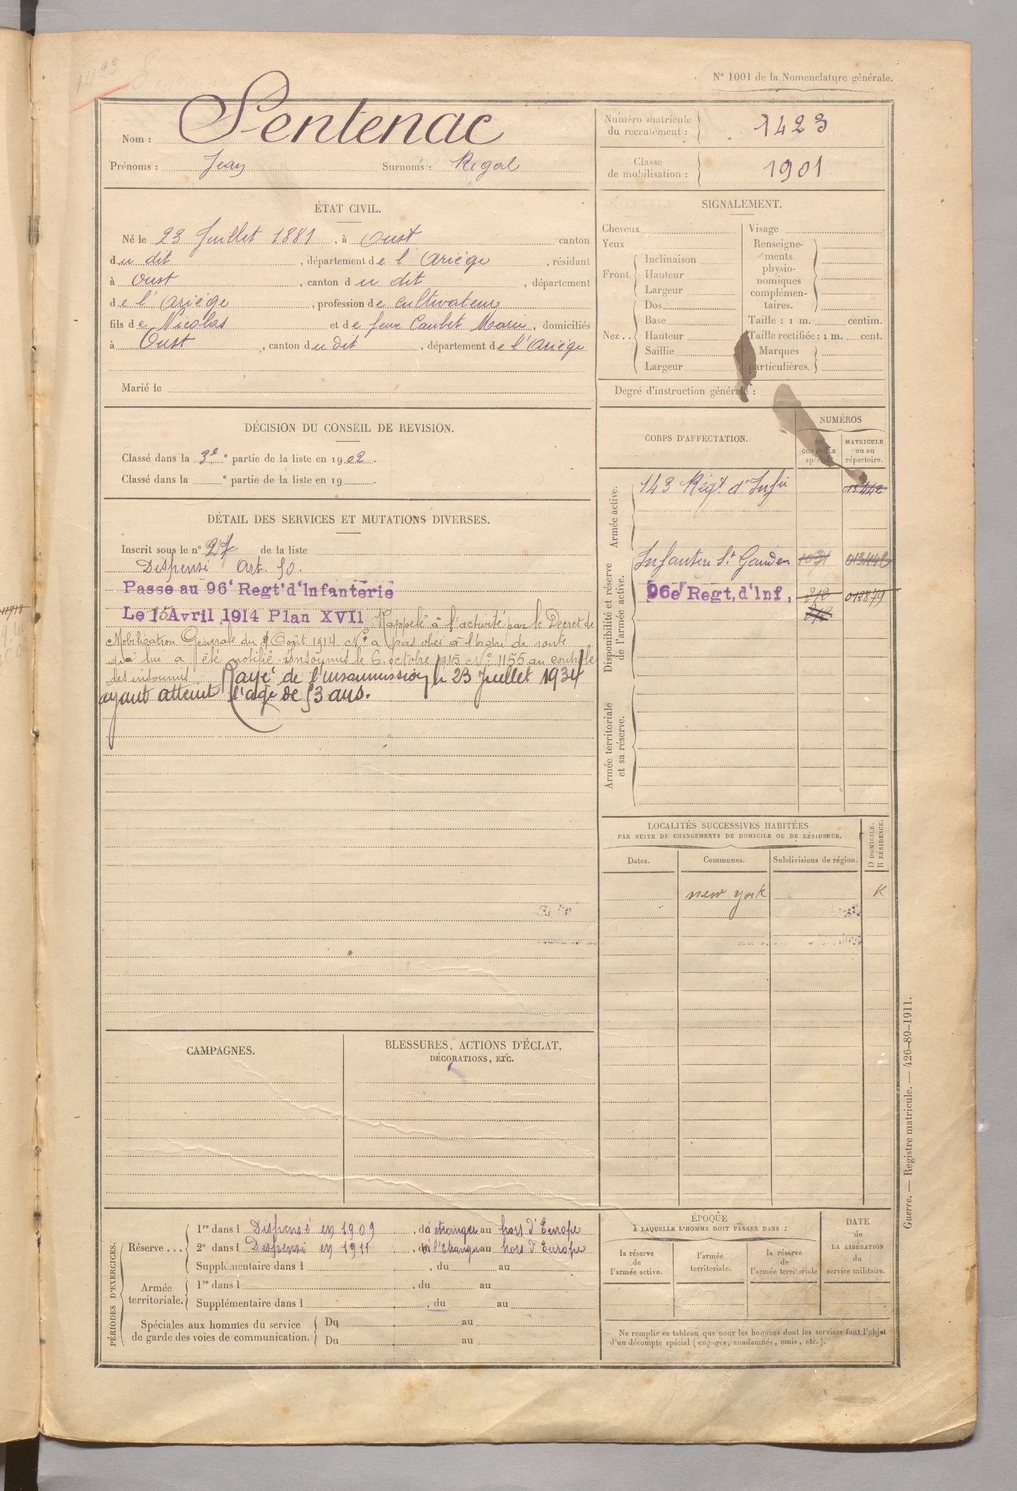 N° 1001 de la Nomenclature générale.
1423
Nom : Sentenac
Prénoms : Jean Surnoms : Rigal
Numéro matricule du recrutement : 1423
Classe de mobilisation : 1901
ÉTAT CIVIL.
Né le 23 Juillet 1881, à Oust canton
du dit, département de l'Ariège, résidant
à Oust, canton du dit, département
de l'Ariège, profession de cultivateur
fils de Nicolas et de feue Caubet Marie, domiciliés
à Oust, canton du dit, département de l'Ariège
Marié le
SIGNALEMENT.
Cheveux
Yeux
Front. Inclinaison
Hauteur
Largeur
Nez.. Dos
Base
Hauteur
Saillie
Largeur
Visage
Renseignements physionomiques complémentaires.
Taille : 1 m. centim.
Taille rectifiée : 1 m. cent.
Marques particulières.
Degré d'instruction générale :
DÉCISION DU CONSEIL DE REVISION.
Classé dans la 3e partie de la liste en 1902.
Classé dans la e partie de la liste en 19 .
CORPS D'AFFECTATION.
NUMÉROS
MATRICULE ou au répertoire.
Armée active.
143 Régt. d'Infie
Disponibilité et réserve de l'armée active.
Infanterie St Gaudens
96e Regt, d'Inf,
Armée territoriale et sa réserve.
DÉTAIL DES SERVICES ET MUTATIONS DIVERSES.
Inscrit sous le n° 27 de la liste
Dispensé Art. 50.
Passé au 96e Regt d'Infanterie
Le 15 Avril 1914 Plan XVII Rappelé à l'activité par le Décret de
Mobilisation Générale du 1 Août 1914. N'a pas obéi à l'ordre de route
qui lui a été notifié. Insoumis le 6 octobre 1915 N° 1155 au contrôle
des insoumis. Rayé de l'insoumission le 23 Juillet 1934
ayant atteint l'âge de 53 ans.
LOCALITÉS SUCCESSIVES HABITÉES
PAR SUITE DE CHANGEMENTS DE DOMICILE OU DE RÉSIDENCE.
Dates. Communes. Subdivisions de région. D DOMICILE. R RÉSIDENCE.
new york R
CAMPAGNES.
BLESSURES, ACTIONS D'ÉCLAT,
DÉCORATIONS, ETC.
PÉRIODES D'EXERCICES.
Réserve... 1re dans l Dispensé en 1909, à étranger au hors d'Europe
2e dans l Dispensé en 1911, à l'étranger au hors d'Europe
Supplémentaire dans l , du au
Armée territoriale. 1re dans l , du au
Supplémentaire dans l , du au
Spéciales aux hommes du service de garde des voies de communication. Du au
Du au
ÉPOQUE
À LAQUELLE L'HOMME DOIT PASSER DANS :
la réserve de l'armée active.
l'armée territoriale.
la réserve de l'armée territoriale
DATE de LA LIBÉRATION du service militaire.
Ne remplir ce tableau que pour les hommes dont les services font l'objet
d'un décompte spécial (engagés, condamnés, omis, etc.).
Guerre. — Registre matricule. — 426-89-1911.